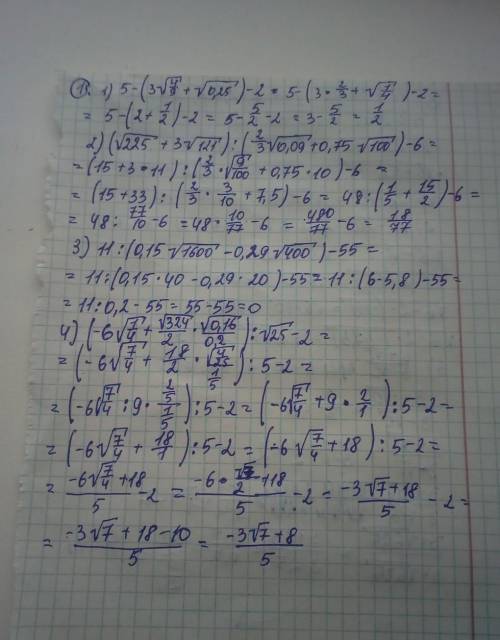 ①. 1) 5-(3√(4/9)+√0,25)-2 = 5-(3·2/3+√(7/4))-2=
= 5-(2+1/2)-2 = 5-5/2-2 = 3-5/2 = 1/2
2) (√225 + 3√121) : (2/3√0,09 + 0,75√100)-6 =
= (15+3·11) : (2/3·√(9/100) + 0,75·10)-6 =
= (15+33) : (2/3·3/10+7,5)-6 = 48:(1/5+15/2)-6 =
= 48: 77/10 -6 = 48·10/77 -6 = 480/77 -6 = 18/77
3) 11:(0,15·√1600 - 0,29√400)-55 =
= 11:(0,15·40-0,29·20)-55 = 11:(6-5,8)-55=
= 11:0,2-55 = 55-55=0
4) (-6√(7/4)+√324/2·√0,16/0,2):√25-2=
= (-6√(7/4)+18/2·√(4/25)/(1/5)):5-2=
= (-6√(7/4):9·(2/5)/(1/5)):5-2=(-6√(7/4)+9·2/1):5-2=
= (-6√(7/4)+18/1):5-2=(-6√(7/4)+18):5-2=
= (-6√(7/4)+18)/5 -2 = (-6·√7/2+18)/5 -2 = (-3√7+18)/5 -2=
= (-3√7+18-10)/5 = (-3√7+8)/5